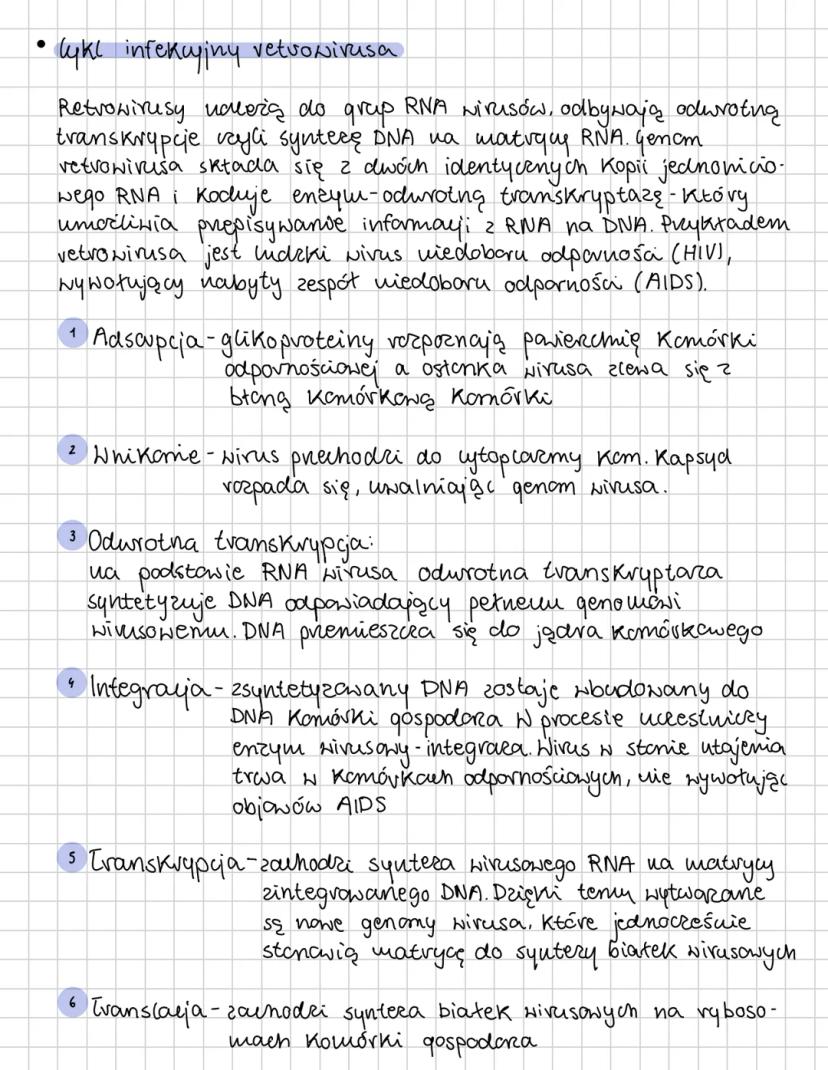 • Cykl infekcyjny retrowirusa
Retrowirusy należą do grup RNA wirusów, odbywają odwrotną
transkrypcje czyli syntezę DNA na matrycy RNA. Genom
retrowirusa składa się z dwóch identycznych kopii jednonicio-
wego RNA i koduje enzym-odwrotną transkryptazę - który
umożliwia przepisywanie informacji z RNA na DNA. Przykładem
retrowirusa jest ludzki wirus niedoboru odporności (HIV),
wywołujący nabyty zespół niedoboru odporności (AIDS).
1 Adsorpcja - glikoproteiny rozpoznają powierzchnię komórki
odpornościowej a osłonka wirusa zlewa się z
błoną komórkową komórki
2 Wnikanie - wirus przechodzi do cytoplazmy kom. Kapsyd
rozpada się, uwalniając genom wirusa.
3 Odwrotna transkrypcja:
na podstawie RNA wirusa odwrotna transkryptaza
syntetyzuje DNA odpowiadający pełnemu genomowi
wirusowemu. DNA przemieszcza się do jądra komórkowego
4 Integracja - zsyntetyzowany DNA zostaje wbudowany do
DNA komórki gospodarza W procesie uczestniczy
enzym wirusowy - integraza. Wirus w stanie utajenia
trwa w komórkach odpornościowych, nie wywołując
objawów AIDS
5 Transkrypcja - zachodzi synteza wirusowego RNA na matrycy
zintegrowanego DNA. Dzięki temu wytwarzane
są nowe genomy wirusa, które jednocześnie
stanowią matrycę do syntezy białek wirusowych
6 Translacja - zachodzi synteza białek wirusowych na ryboso-
mach komórki gospodarza